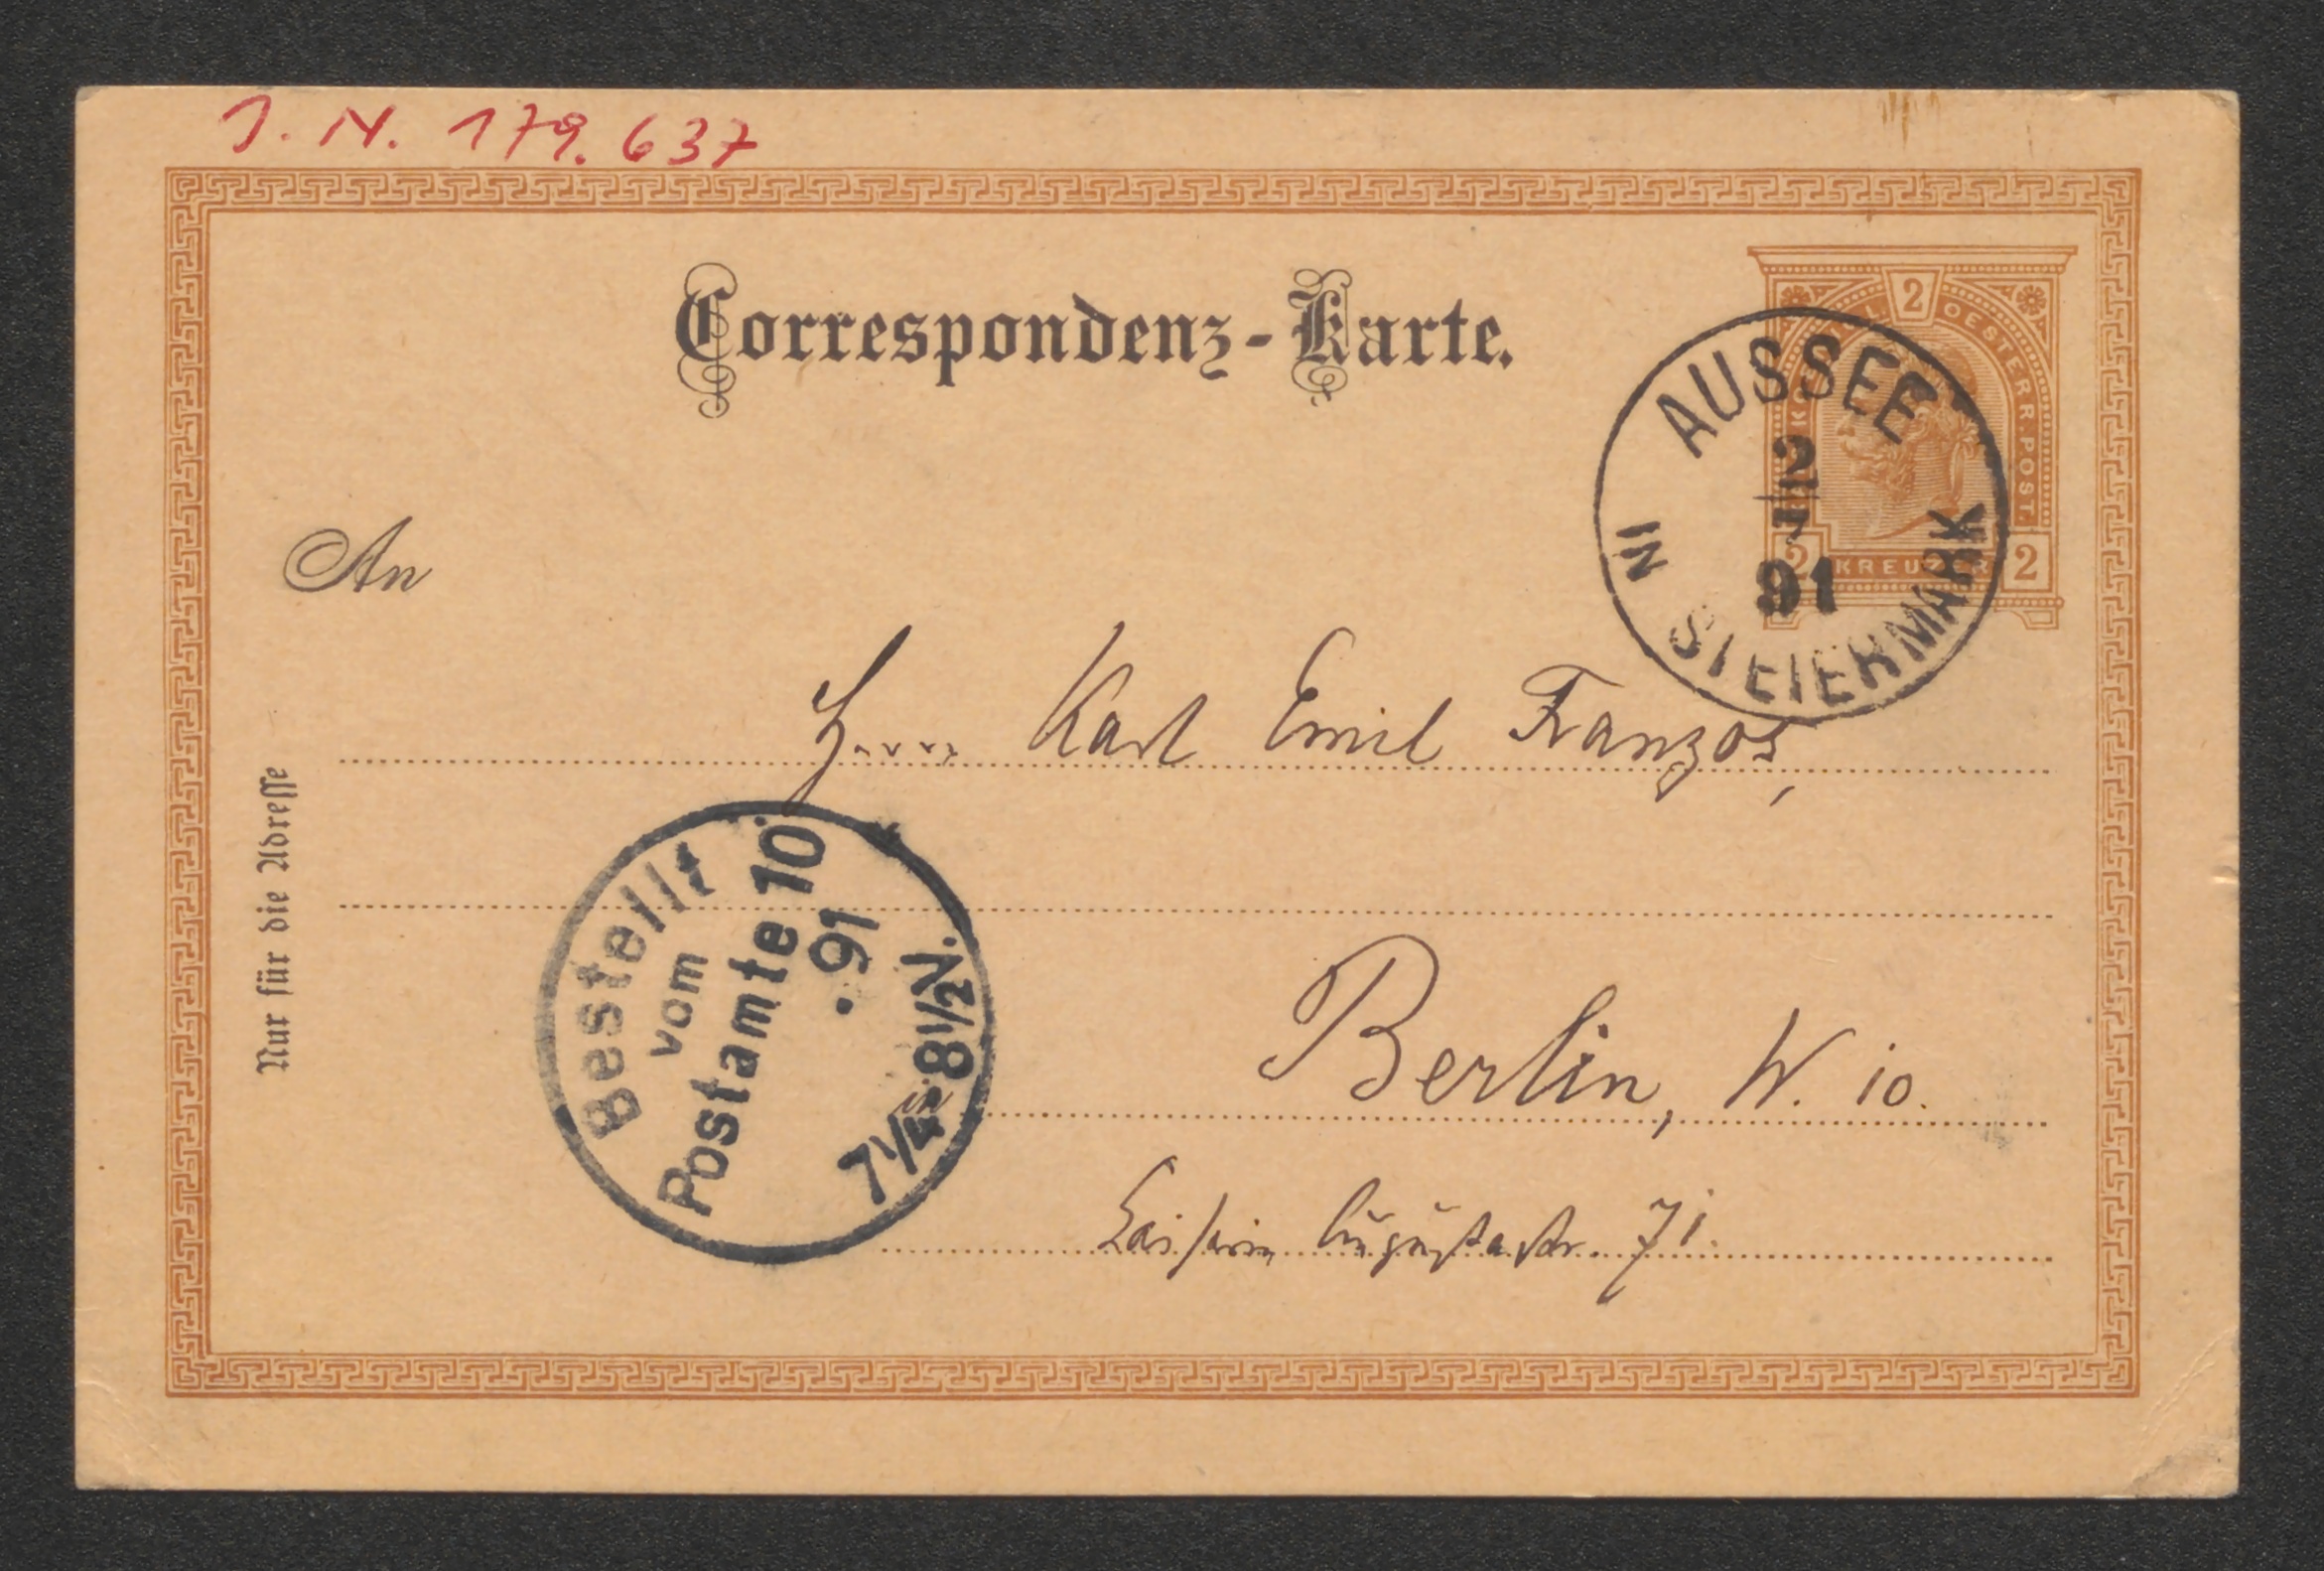 J. N. 179.637
Correspondenz-Karte.
2
OESTERR. POST.
2 KREUZER 2
AUSSEE
2
91
IN STEIERMARK
An
Herrn Karl Emil Franzos,
Nur für die Adresse
Bestellt
vom
Postamte 10
. 91
7¼-8½N.
Berlin, W. 10.
Kaiserin Augustastr. 71.